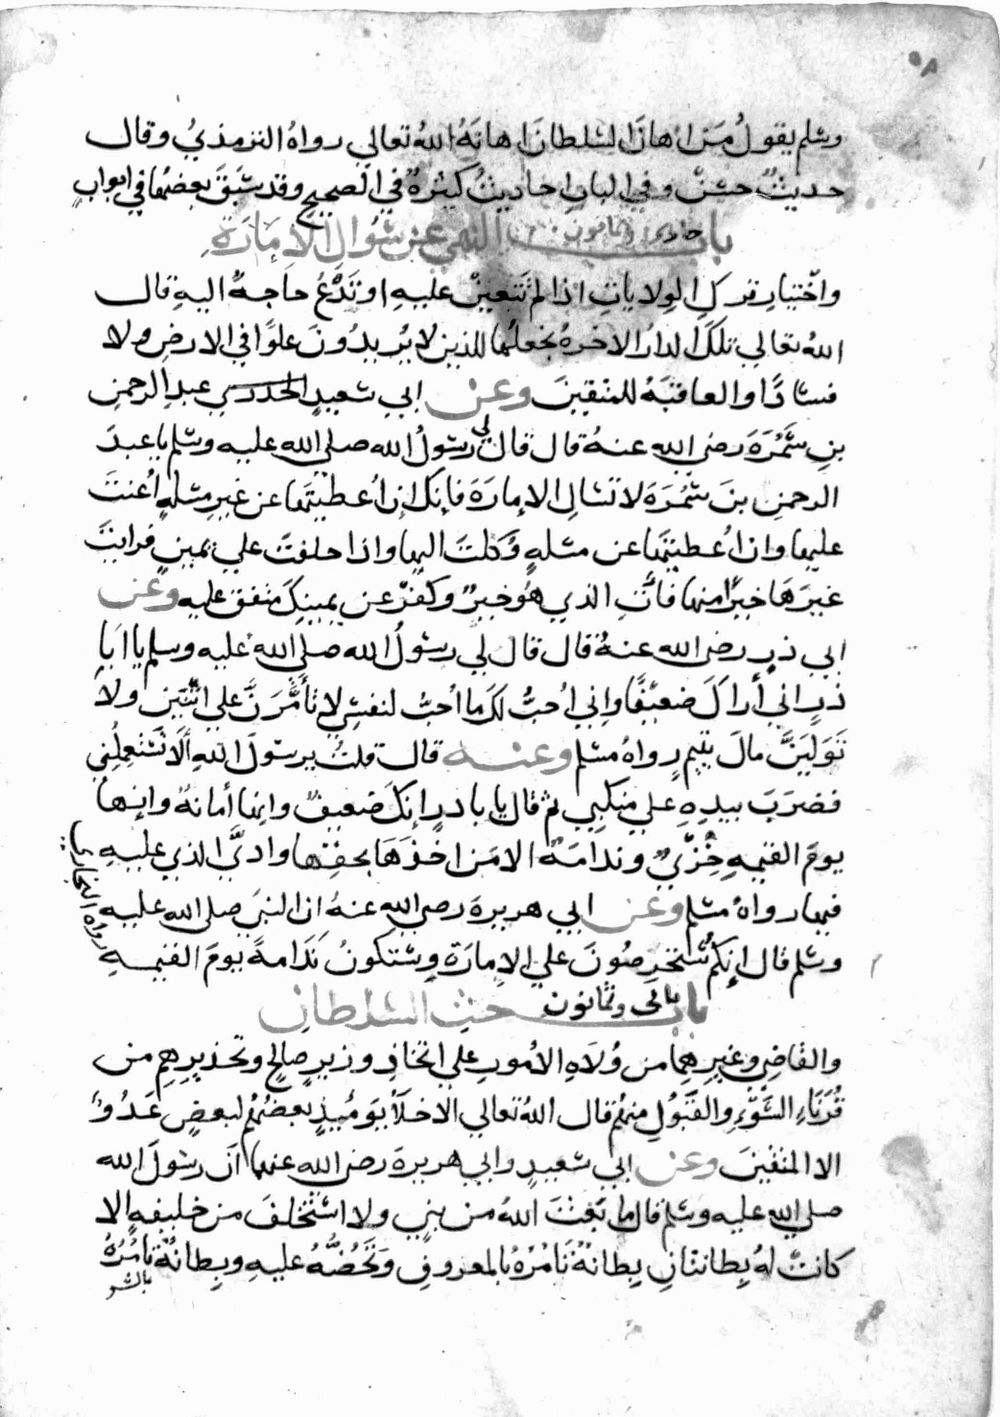 ٥٨
وسلم يقول من اهان السلطان اهانه الله تعالي رواه الترمذي وقال
حديث حسن وفي الباب احاديث كثيرة في الصحيح وقد سبق بعضها في ابواب
باب حادي وثمانون النهي عن سوال الامارة
واختيار ترك الولايات اذا لم تتعين عليه او تدع حاجة اليه قال
الله تعالي تلك الدار الاخره نجعلها للذين لا يريدون علوا في الارض ولا
فسادا والعاقبة للمتقين وعن ابي سعيد الخدري عبد الرحمن
بن سمرة رضي الله عنه قال قال لي رسول الله صلي الله عليه وسلم يا عبد
الرحمن بن سمرة لا تسال الامارة فانك ان اعطيتها عن غير مسله اعنت
عليها وان اعطيتها عن مسله وكلت اليها واذا حلفت علي يمين فرايت
غيرها خيرا منها فات الذي هو خير وكفر عن يمينك متفق عليه وعن
ابي ذر رضي الله عنه قال قال لي رسول الله صلي الله عليه وسلم يا ابا
ذر اني أراك ضعيفا واني احب لك ما احب لنفسي لا تأمرن علي اثنين ولا
تولين مال يتيم رواه مسلم وعنه قال قلت يرسول الله ألا تستعملني
فضرب بيده علي منكبي ثم قال يا با ذر إنك ضعيف وانها أمانة وإنها
يوم القيمه خزي وندامة الا من اخذها بحقها وادي الذي عليه
فيها رواه مسلم وعن ابي هريرة رضي الله عنه ان النبي صلي الله عليه
وسلم قال إنكم ستحرصون علي الامارة وستكون ندامة يوم القيمه
رواه البخاري
باب ثاني وثمانون حث السلطان
والقاضي وغيرهما من ولاه الامور علي اتخاذ وزير صالح وتحذيرهم من
قرناء السوء والقبول منهم قال الله تعالي الاخلا يوميذ بعضهم لبعض عدو
الا المتقين وعن ابي سعيد وابي هريرة رضي الله عنهما ان رسول الله
صلي الله عليه وسلم قال ما بعث الله من نبي ولا استخلف من خليفه الا
كانت له بطانتان بطانة تامره بالمعروف وتحضه عليه وبطانة تامره
بالشر